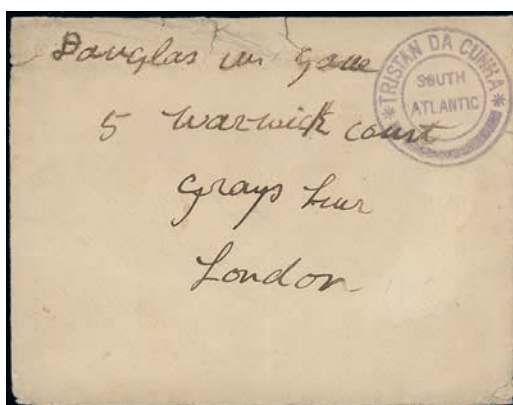 Douglas M Gane
5 Warwick Court
Grays Inn
London
* TRISTAN DA CUNHA *
SOUTH
ATLANTIC